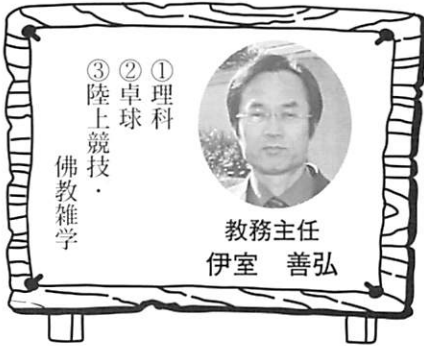 教務主任
伊室　善弘
①理科
②卓球
③陸上競技・
佛教雑学